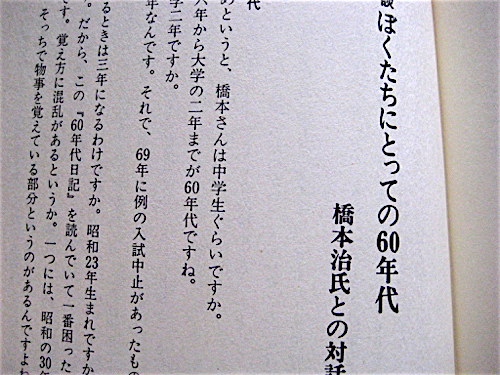 談 ぼくたちにとっての60年代
橋本治氏との対話
代
めというと、橋本さんは中学生ぐらいですか。
六年から大学の二年までが60年代ですね。
学二年ですか。
年なんです。それで、69年に例の入試中止があったもの
るときは三年になるわけですか。昭和23年生まれですか
。だから、この『60年代日記』を読んでいて一番困った
す。覚え方に混乱があるというか。一つには、昭和の30年
そっちで物事を覚えている部分というのがあるんですよね